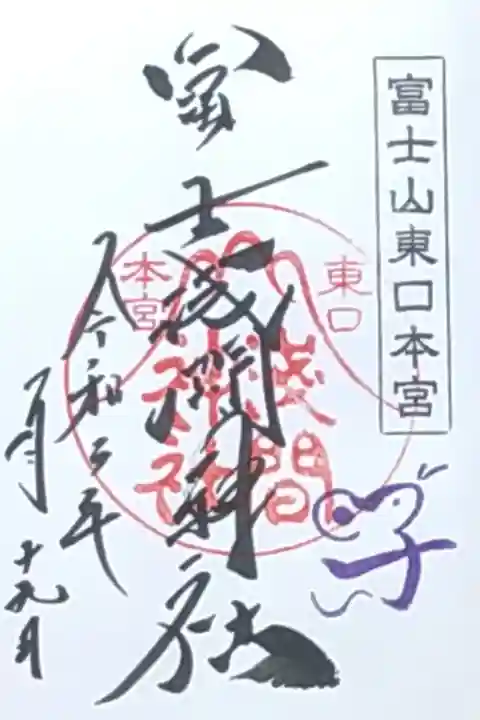 富士山東口本宮
子
東口
本宮
浅間
神社
冨士浅間神社
令和二年
月
十九日